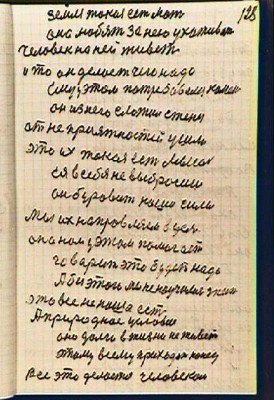 128
земля такая есть мать
она любят за нею ухаживат
человек на ней живет
и то он делает чего надо
ему этом потребовался камен
он из него сложил стену
от не приятностей ушли
это их такая есть мысл
ся в себя не выбросиш
он бороват наши сили
Мы их направляем в дел
она нам у этом помогает
говарит это будет надо
А бы этого мы не научилис знали
это все не наша есть
А природное условие
оно долго в жизни не живет
этому всему приходит конец
все это делается человеком